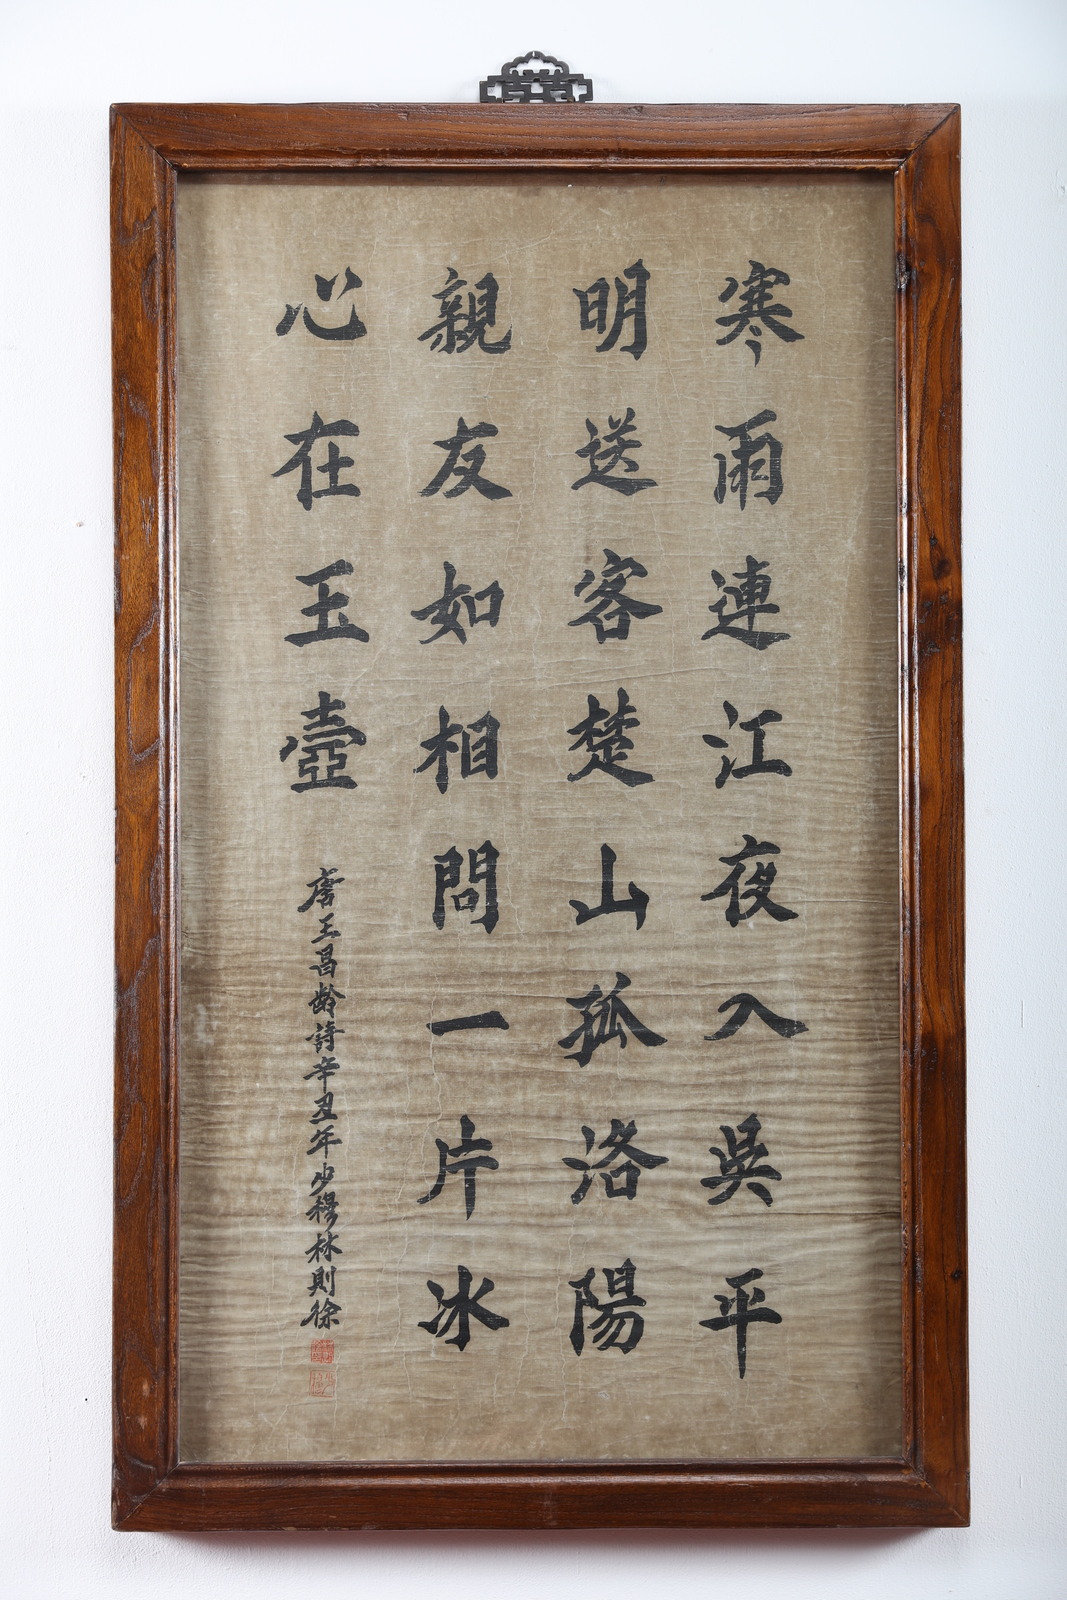 寒雨連江夜入吳平
明送客楚山孤洛陽
親友如相問一片冰
心在玉壺
唐王昌齡詩辛丑年少穆林則徐